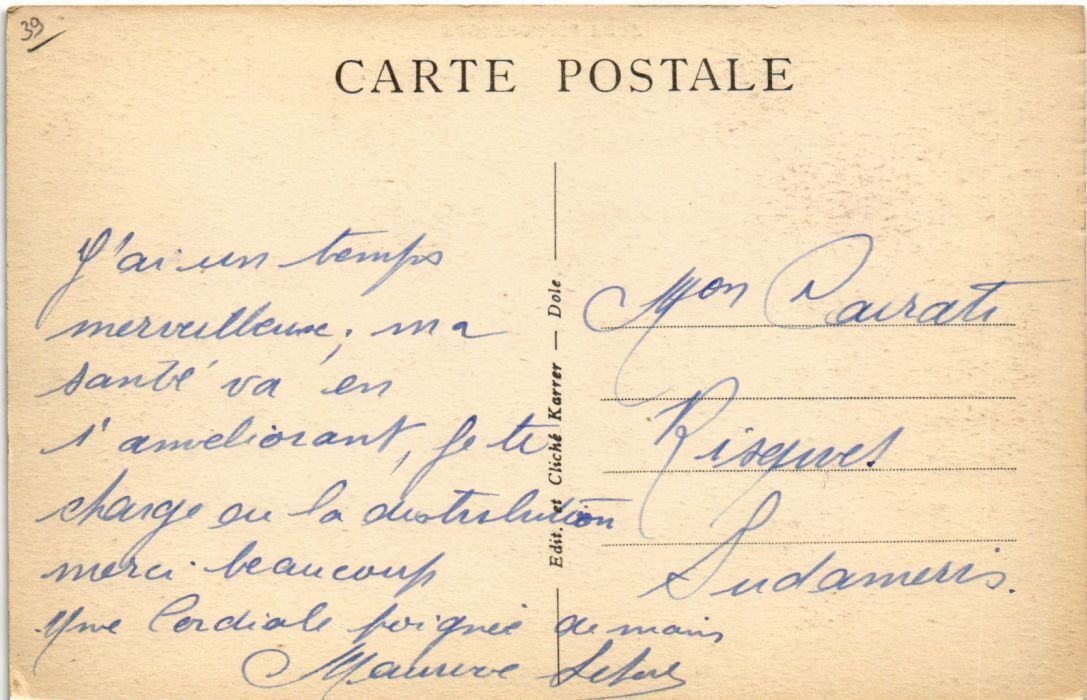 39
CARTE POSTALE
J'ai un temps
merveilleux, ma
santé va en
s'améliorant, je te
charge de la distribution
merci beaucoup
Une Cordiale poignée de mains
Maurice
Edit. et Cliché Karrer — Dole
Mon Cairati
Risques
Sudameris.